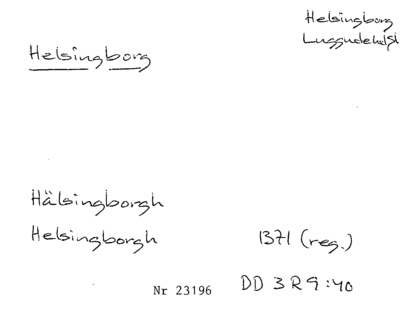 Helsingborg
Luggude hd Sk
Helsingborg
Hälsingborgh
Helsingborgh 1371 (reg.)
Nr 23196 DD 3 R 9:40